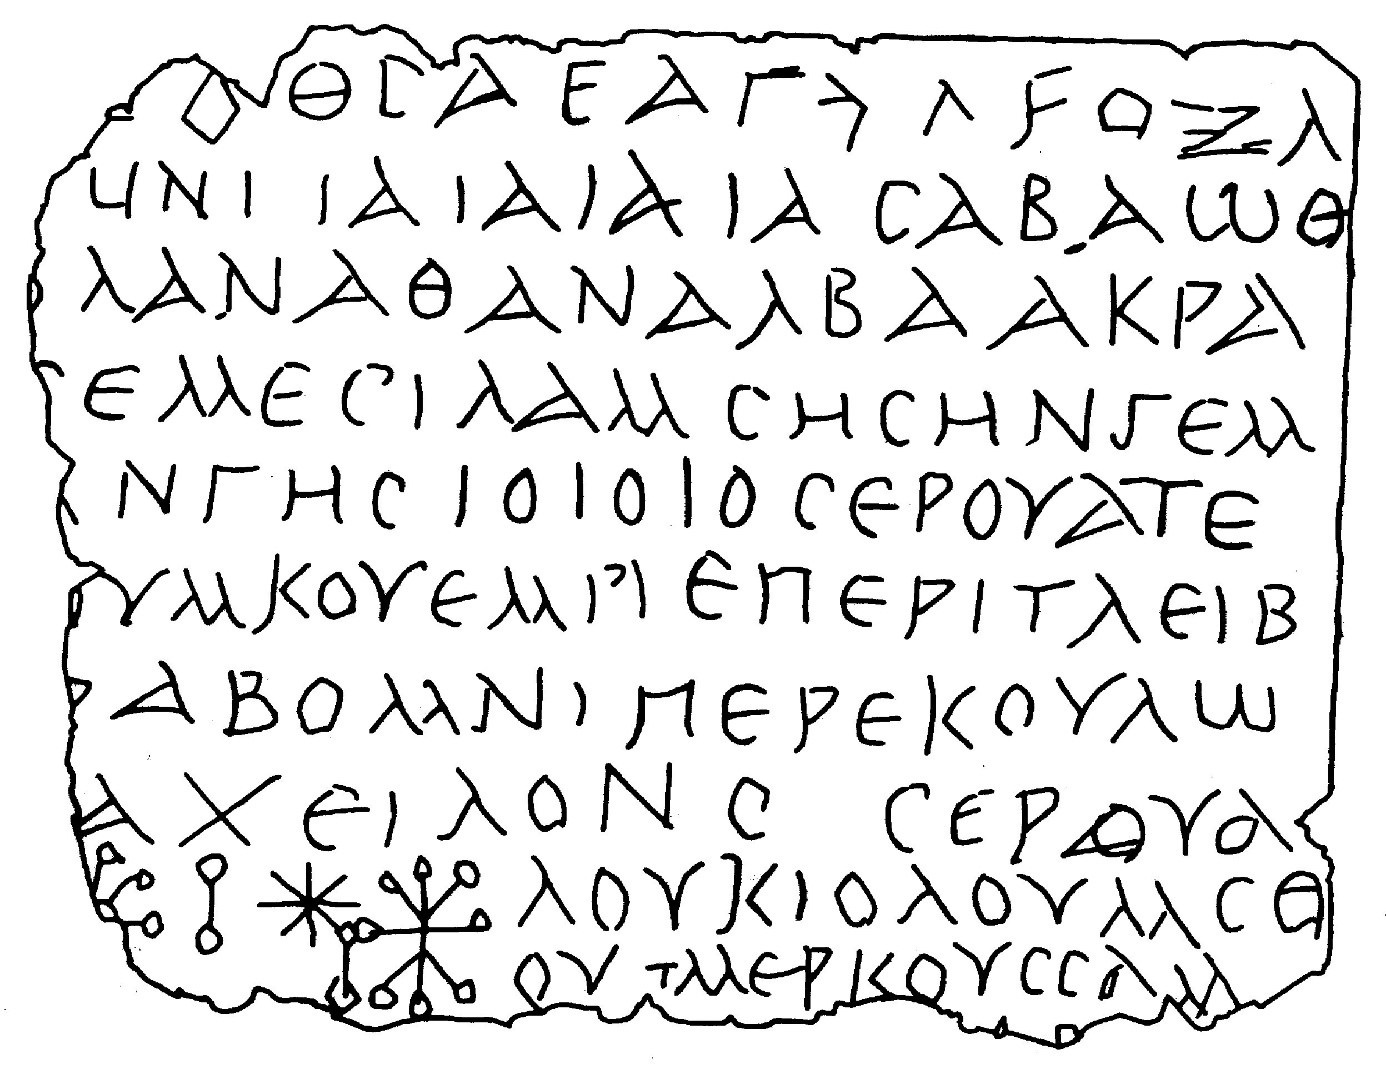 ΘϹΑΕΑΓ
ΝΙ ΙΑΙΑΙΑΙΑ ϹΑΒΑΩΘ
ΛΑΝΑΘΑΝΑΛΒΑΑΚΡΑ
ΕΜΕϹΙΛΑΜϹΗϹΗΝΓΕΜ
ΝΓΗϹΙΟΙΟΙΟϹΕΡΟΥΑΤΕ
ΥΜΚΟΥΕΜ ΕΠΕΡΙΤΛΕΙΒ
ΑΒΟΜΝΙΠΕΡΕΚΟΥΛΩ
ΑΧΕΙΛΟΝϹ ϹΕΡΟΥΑ
ΛΟΥΚΙΟΛΟΥΜϹΘ
ΟΥΤΜΕΡΚΟΥϹϹΑΜ